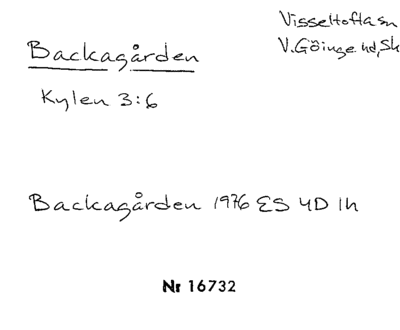 Visseltofta sn
V. Göinge hd, Sk
Backagården
Kylen 3:6
Backagården 1976 ES 4D 1h
Nr 16732